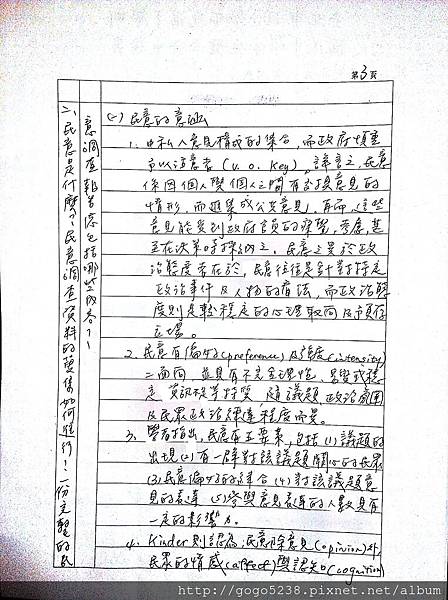 第3頁
二、民意是什麼?民意調查資料的蒐集如何進行?一份完整的民
意調查報告應包括哪些內容?
(一)民意的意涵
1. 由私人意見構成的集合,而政府慎重
予以注意者(V.O. Key)。詳言之,民意
係因個人與個人之間有交換意見的
情形,而匯集成公共意見,再而,這些
意見能受到政府官員的察覺、考慮,甚
至在決策時採納之。民意之異於政
治態度者在於,民意往往是針對特定
政治事件及人物的看法,而政治態
度則是較穩定的心理取向及
立場。
2. 民意有偏好(preference)及強度(intensity)
二面向,並具有不完全理性、易變或穩
定、資訊 等特質,隨議題、政治氛圍
及民眾政治 程度而異。
3. 學者指出,民意有五要素,包括(1)議題的
出現(2)有一群對該議題關心的民眾
(3)民意偏好的綜合(4)對該議題意
見的表達(5)參與意見表達的人數具有
一定的影響力。
4. Kinder則認為,民意除意見(opinion)外,
民眾的情感(affect)與認知(cognition)
http://gogo5238.pixnet.net/album